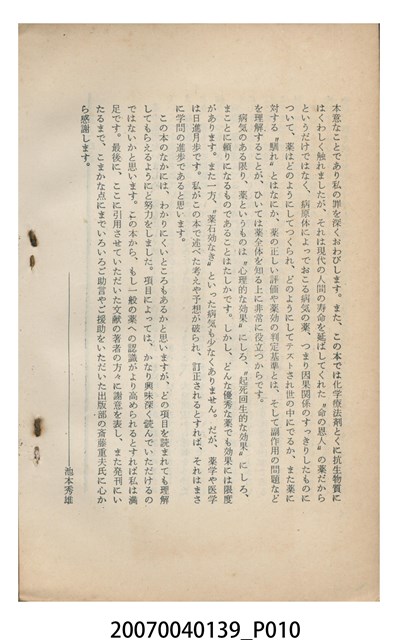 本意なことであり私の罪を深くおわびします。また、この本では化学療法剤とくに抗生物質に
はくわしく触れましたが、それは現代の人間の寿命を延ばしてくれた〝命の恩人〟の薬だから
というだけではなく、病原体によっておこる病気の薬、つまり因果関係のすっきりしたものに
ついて、薬はどのようにしてつくられ、どのようにしてテストされ世の中にでるか、また薬に
対する〝馴れ〟とはなにか、薬の正しい評価や薬効の判定基準とは、そして副作用の問題など
を理解することが、ひいては薬全体を知る上に非常に役立つからです。
病気のある限り、薬というものは〝心理的な効果〟にしろ、〝起死回生的な効果〟にしろ、
まことに頼りになるものであることはたしかです。しかし、どんな優秀な薬でも効果には限度
があります。また一方、〝薬石効なき〟といった病気も少なくありません。だが、薬学や医学
は日進月歩です。私がこの本で述べた考えや予想が破られ、訂正されるとすれば、それはまさ
に学問の進歩であると思います。
この本のなかには、わかりにくいところもあるかと思いますが、どの項目を読まれても理解
してもらえるようにと努力をしました。項目によっては、かなり興味深く読んでいただけるの
ではないかと思います。この本から、もし一般の薬への認識がより高められるとすれば私は満
足です。最後に、ここに引用させていただいた文献の著者の方々に謝意を表し、また発刊にい
たるまで、こまかな点にまでいろいろご助言やご援助をいただいた出版部の斎藤重夫氏に心か
ら感謝します。
池本秀雄
20070040139_P010